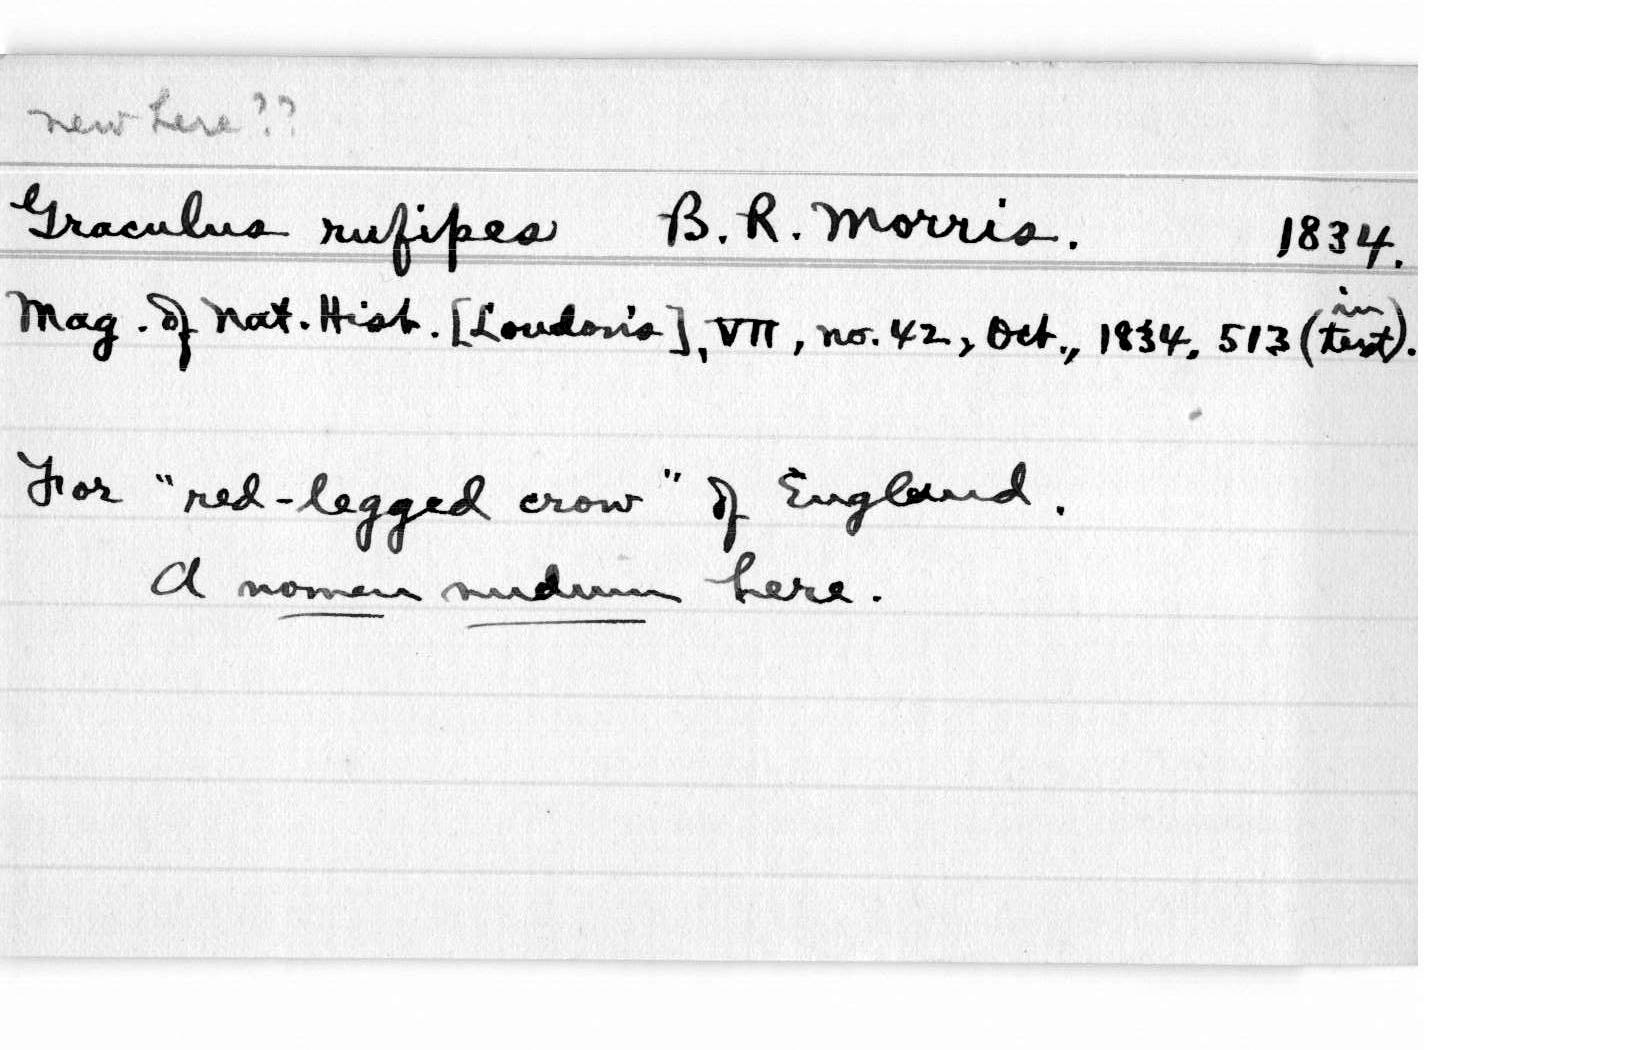 new here??
Graculus rufipes B. R. Morris. 1834.
Mag. of Nat. Hist. [Loudon's], VII, no. 42, Oct., 1834, 513 (in text).
For "red-legged crow" of England.
A nomen nudum here.